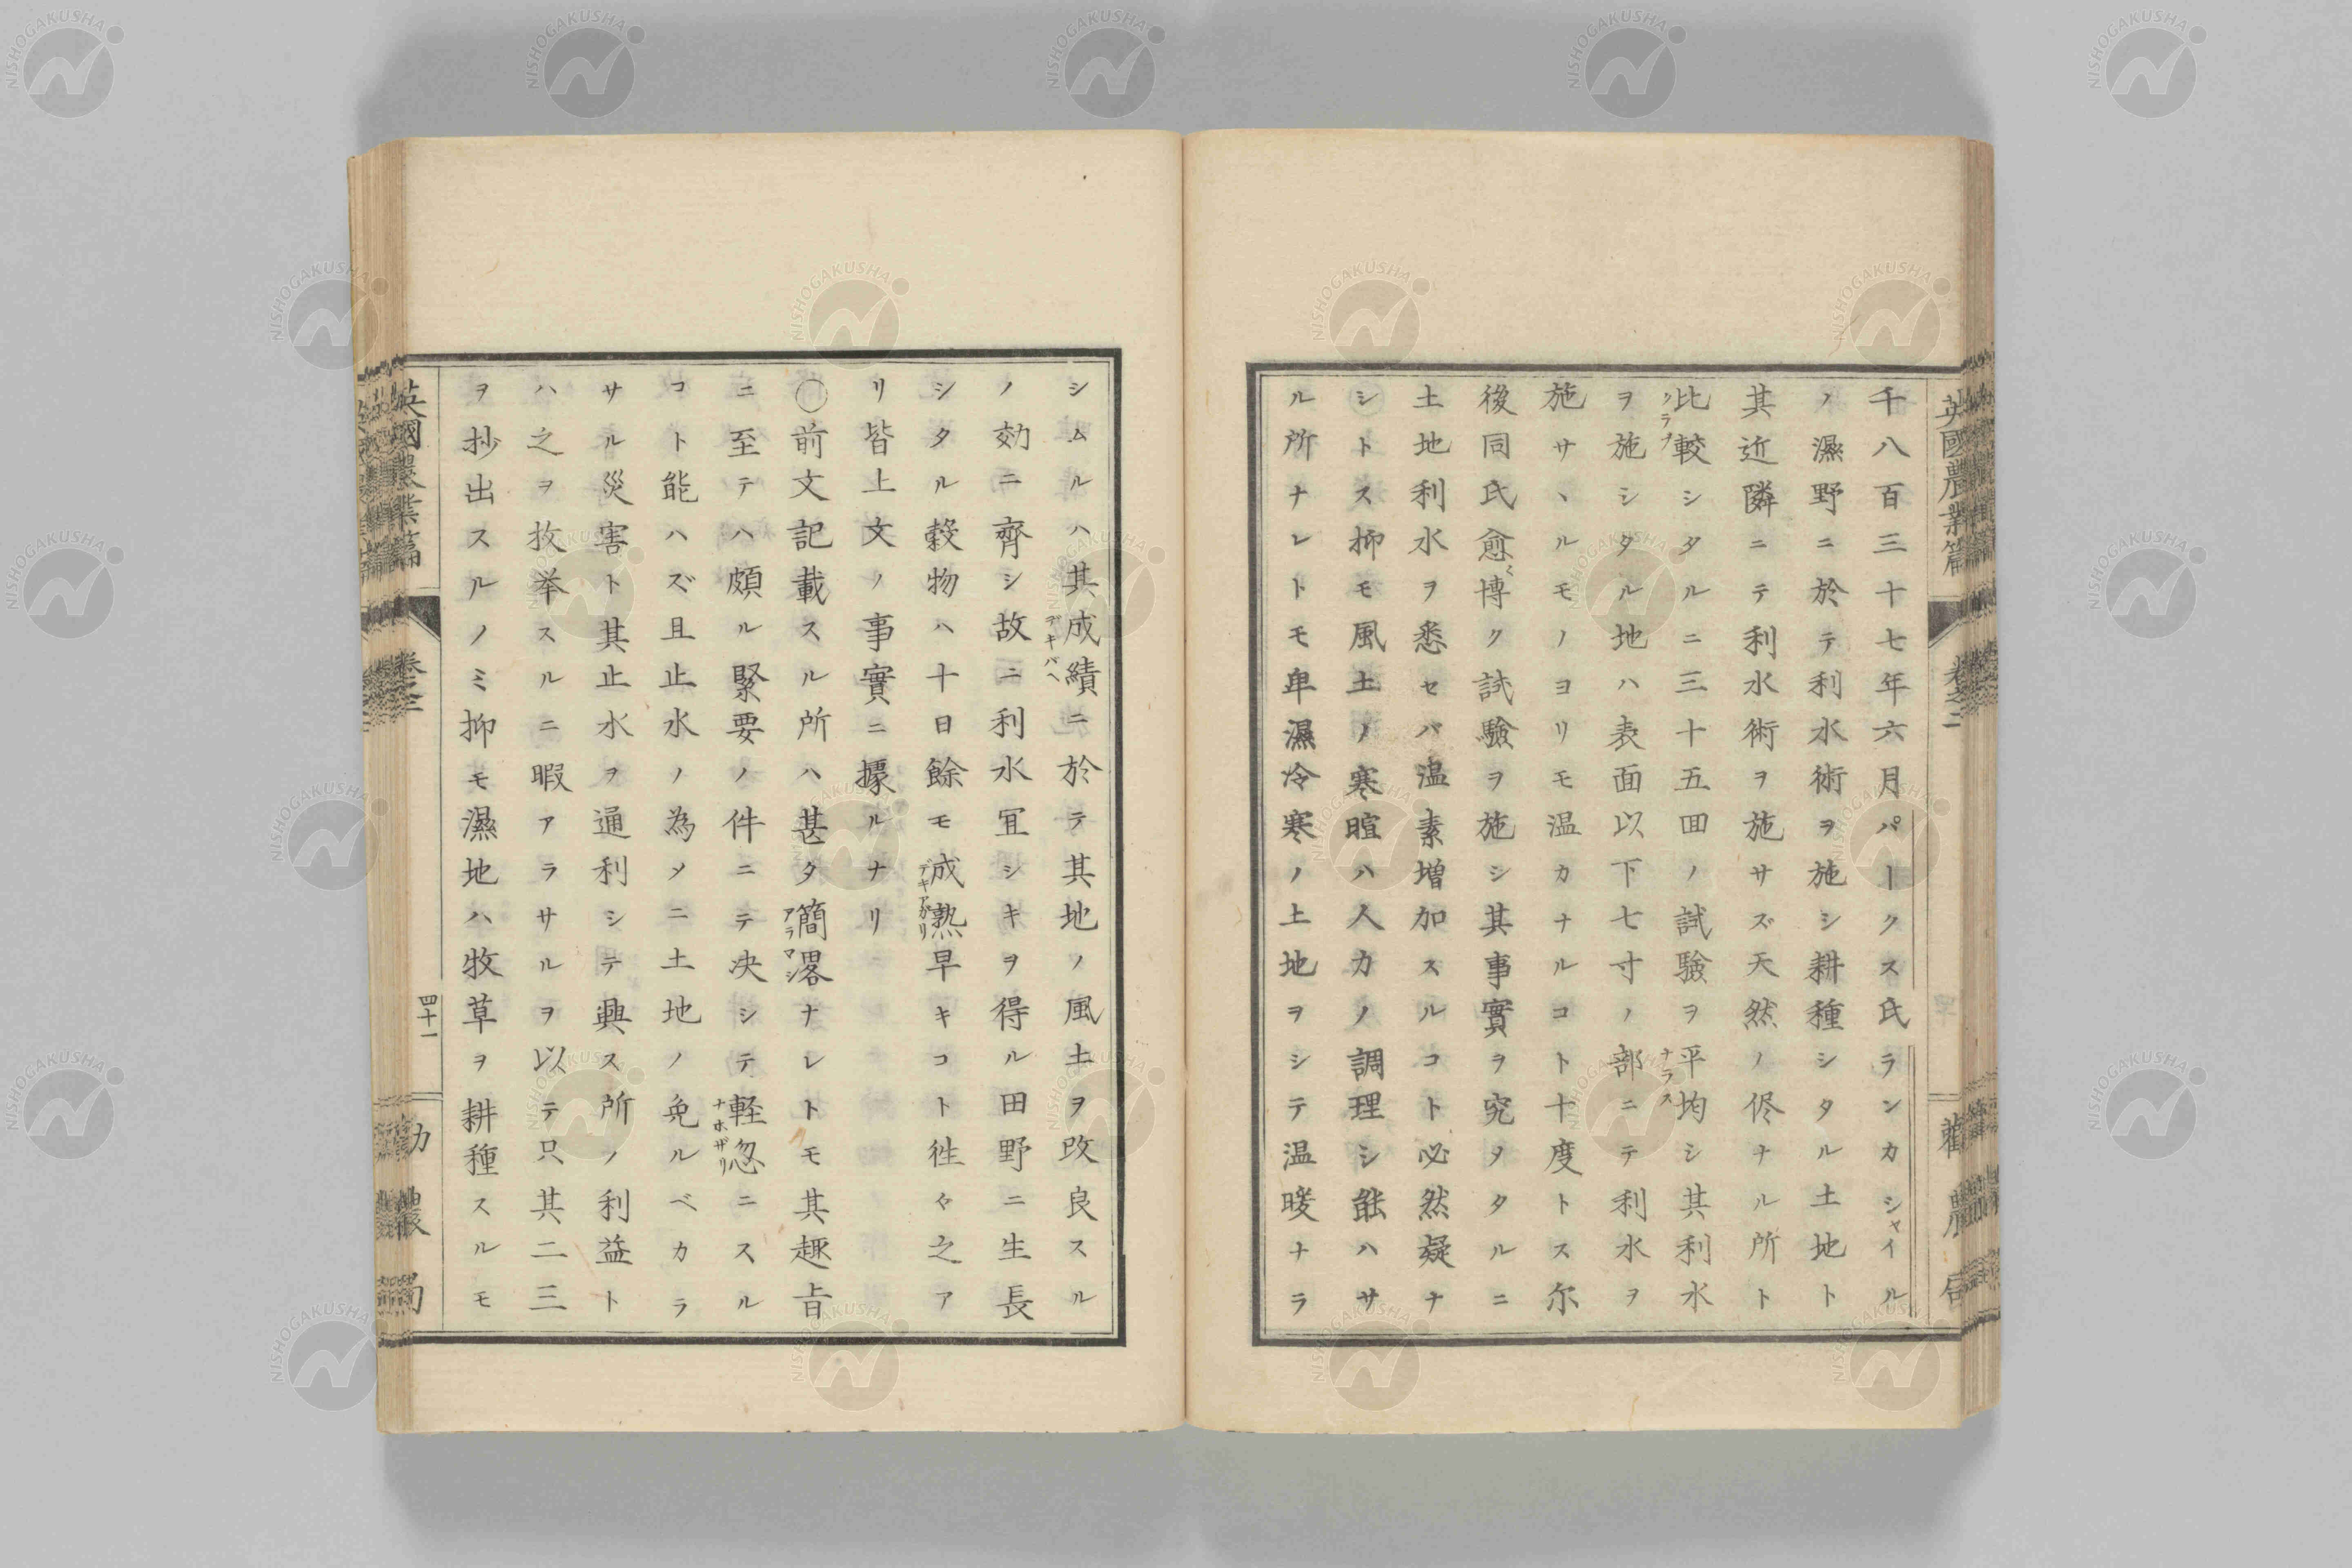 千八百三十七年六月パークス氏ランカシャイル
ノ濕野ニ於テ利水術ヲ施シ耕種シタル土地ト
其近隣ニテ利水術ヲ施サズ天然ノ侭ナル所ト
比較シタルニ三十五囬ノ試驗ヲ平均シ其利水
クラブ
ナラス
ヲ施シタル地ハ表面以下七寸ノ部ニテ利水ヲ
施サヽルモノヨリモ温カナルコト十度トス尓
後同氏愈〻博ク試驗ヲ施シ其事實ヲ究メタルニ
土地利水ヲ悉セバ温素増加スルコト必然疑ナ
シトス抑モ風土ノ寒暄ハ人力ノ調理シ能ハサ
ル所ナレトモ卑濕冷寒ノ土地ヲシテ温暖ナラ
英國農業篇
卷之二
勸農局
シムルハ其成績ニ於テ其地ノ風土ヲ改良スル
デキバヘ
ノ効ニ齊シ故ニ利水冝シキヲ得ル田野ニ生長
シタル穀物ハ十日餘モ成熟早キコト徃々之ア
デキアガリ
リ皆上文ノ事實ニ據ルナリ
〇前文記載スル所ハ甚タ簡畧ナレトモ其趣旨
アラマシ
ニ至テハ頗ル緊要ノ件ニテ决シテ軽忽ニスル
ナホザリ
コト能ハズ且止水ノ為メニ土地ノ免ルベカラ
サル災害ト其止水ヲ通利シテ興ス所ノ利益ト
ハ之ヲ枚挙スルニ暇アラサルヲ以テ只其二三
ヲ抄出スルノミ抑モ濕地ハ牧草ヲ耕種スルモ
英國農業篇
卷之二
四十一
勸農局
NISHOGAKUSHA